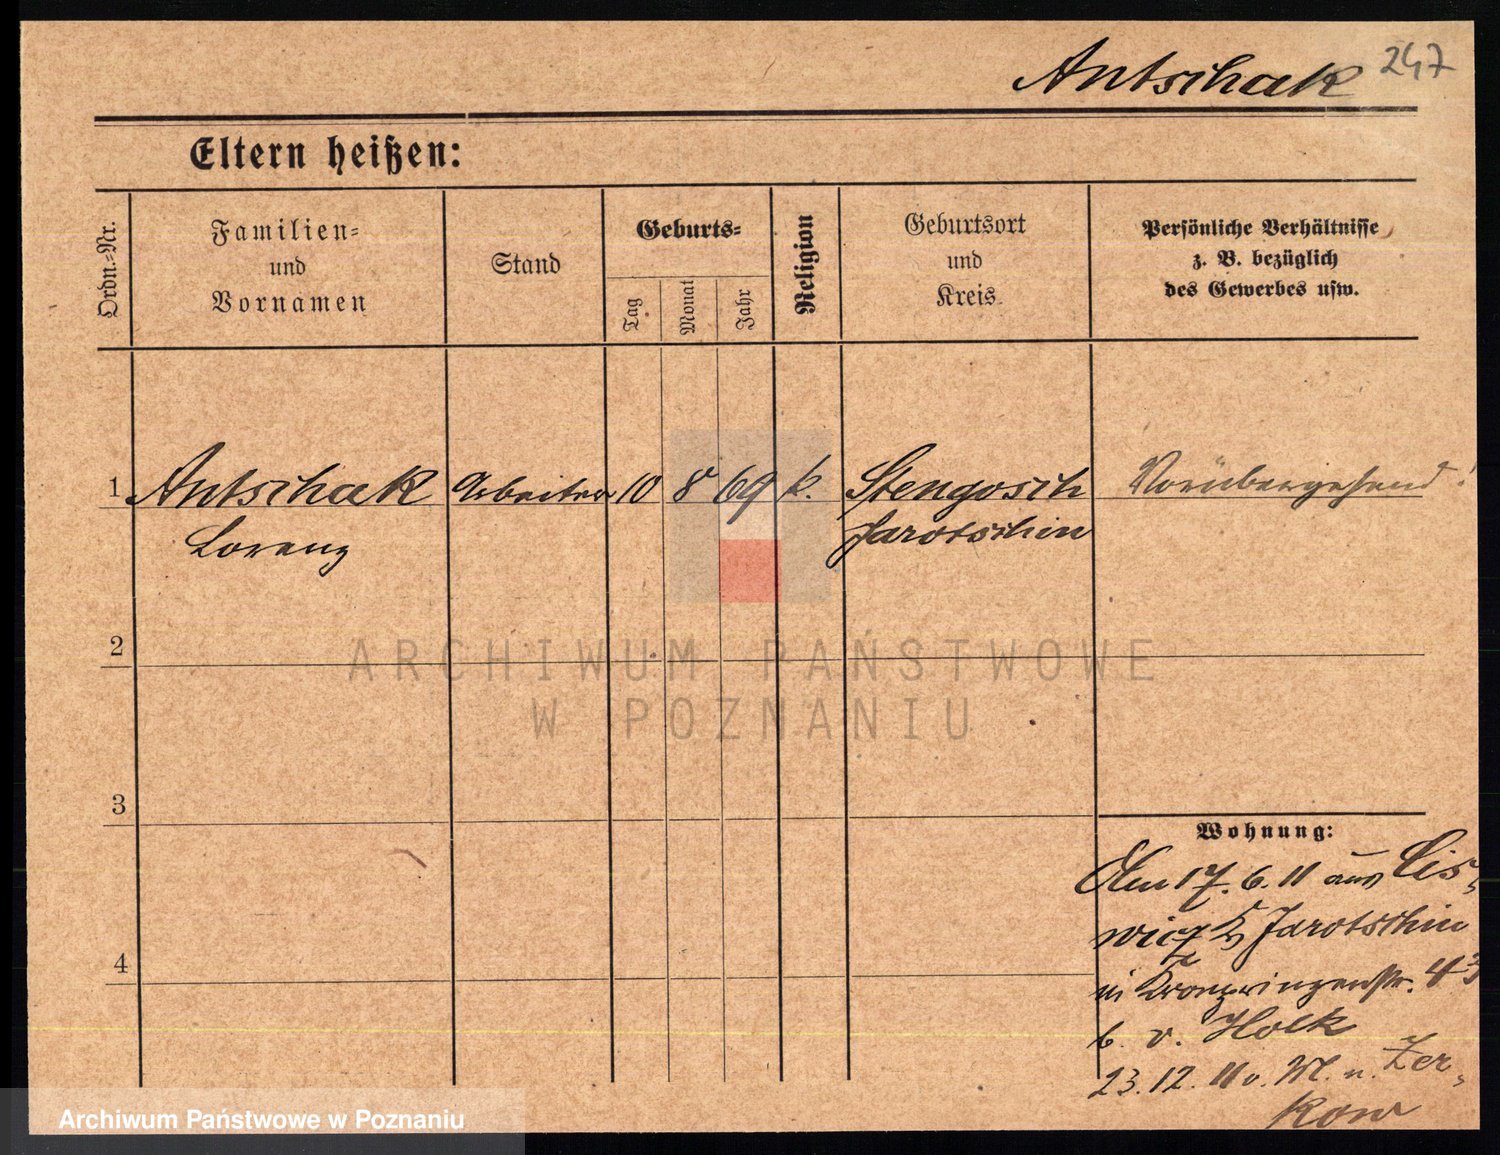 Antschak 247
Eltern heißen:
Ordn.-Nr.
Familien-
und
Vornamen
Stand
Geburts-
Tag
Monat
Jahr
Religion
Geburtsort
und
Kreis
Persönliche Verhältnisse
z. B. bezüglich
des Gewerbes usw.
1 Antschak Arbeiter 10 8 69 k. Stengosch Vorübergehend!
Lorenz Jarotschin
2
ARCHIWUM PAŃSTWOWE
W POZNANIU
3
Wohnung:
Den 17. 6. 11 aus Cis-
wicz Jarotschin
in Kronprinzenstr. 43
b. v. Holk
4
23. 12. 11 v. M. n. Zer-
kow
Archiwum Państwowe w Poznaniu